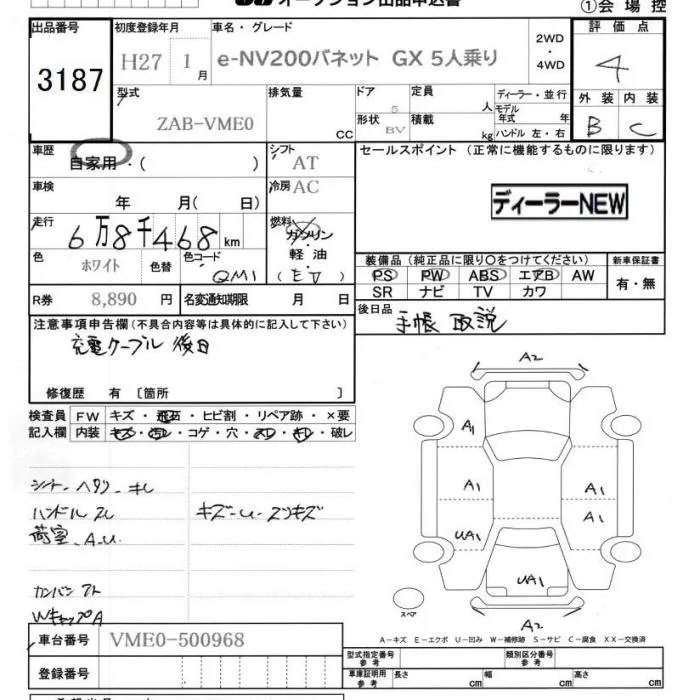 オークション出品申込書
①会 場 控
出品番号
3187
初度登録年月
H27 1月
車名・グレード
e-NV200バネット GX 5人乗り
2WD
・
4WD
評 価 点
4
外 装 内 装
B C
型式
ZAB-VME0
排気量
CC
ドア
5
形状
BV
定員
人
積載
kg
ディーラー・並行
モデル
年式 年
ハンドル 左・右
車歴
自家用・( )
シフト
AT
車検
年 月( 日)
冷房
AC
走行
6万8千468km
燃料
ガソリン
・
軽 油
(EV)
色
ホワイト
色替
色コード
QM1
R券
8,890 円
名変通知期限
月 日
セールスポイント (正常に機能するものに限ります)
ディーラーNEW
装備品(純正品に限り〇をつけてください)
PS PW ABS エアB AW
SR ナビ TV カワ
新車保証書
有・無
後日品
手帳 取説
注意事項申告欄(不具合内容等は具体的に記入して下さい)
充電ケーブル 後日
修復歴 有 〔箇所 〕
検査員
記入欄
FW キズ・飛石・ヒビ割・リペア跡・×要
内装 キズ・汚レ・コゲ・穴・スレ・キレ・破レ
シート ヘタリ キレ
ハンドル スレ
キズ-U-スリキズ
荷室 A.U
カンバン アト
WキャップA
A2
A1
A1
A1
A1
UA1
UA1
A2
スペア
A-キズ E-エクボ U-凹み W-補修跡 S-サビ C-腐食 XX-交換済
車台番号
VME0-500968
登録番号
型式指定番号
参 考
類別区分番号
参 考
車庫証明用
参 考
長さ cm
幅 cm
高さ cm